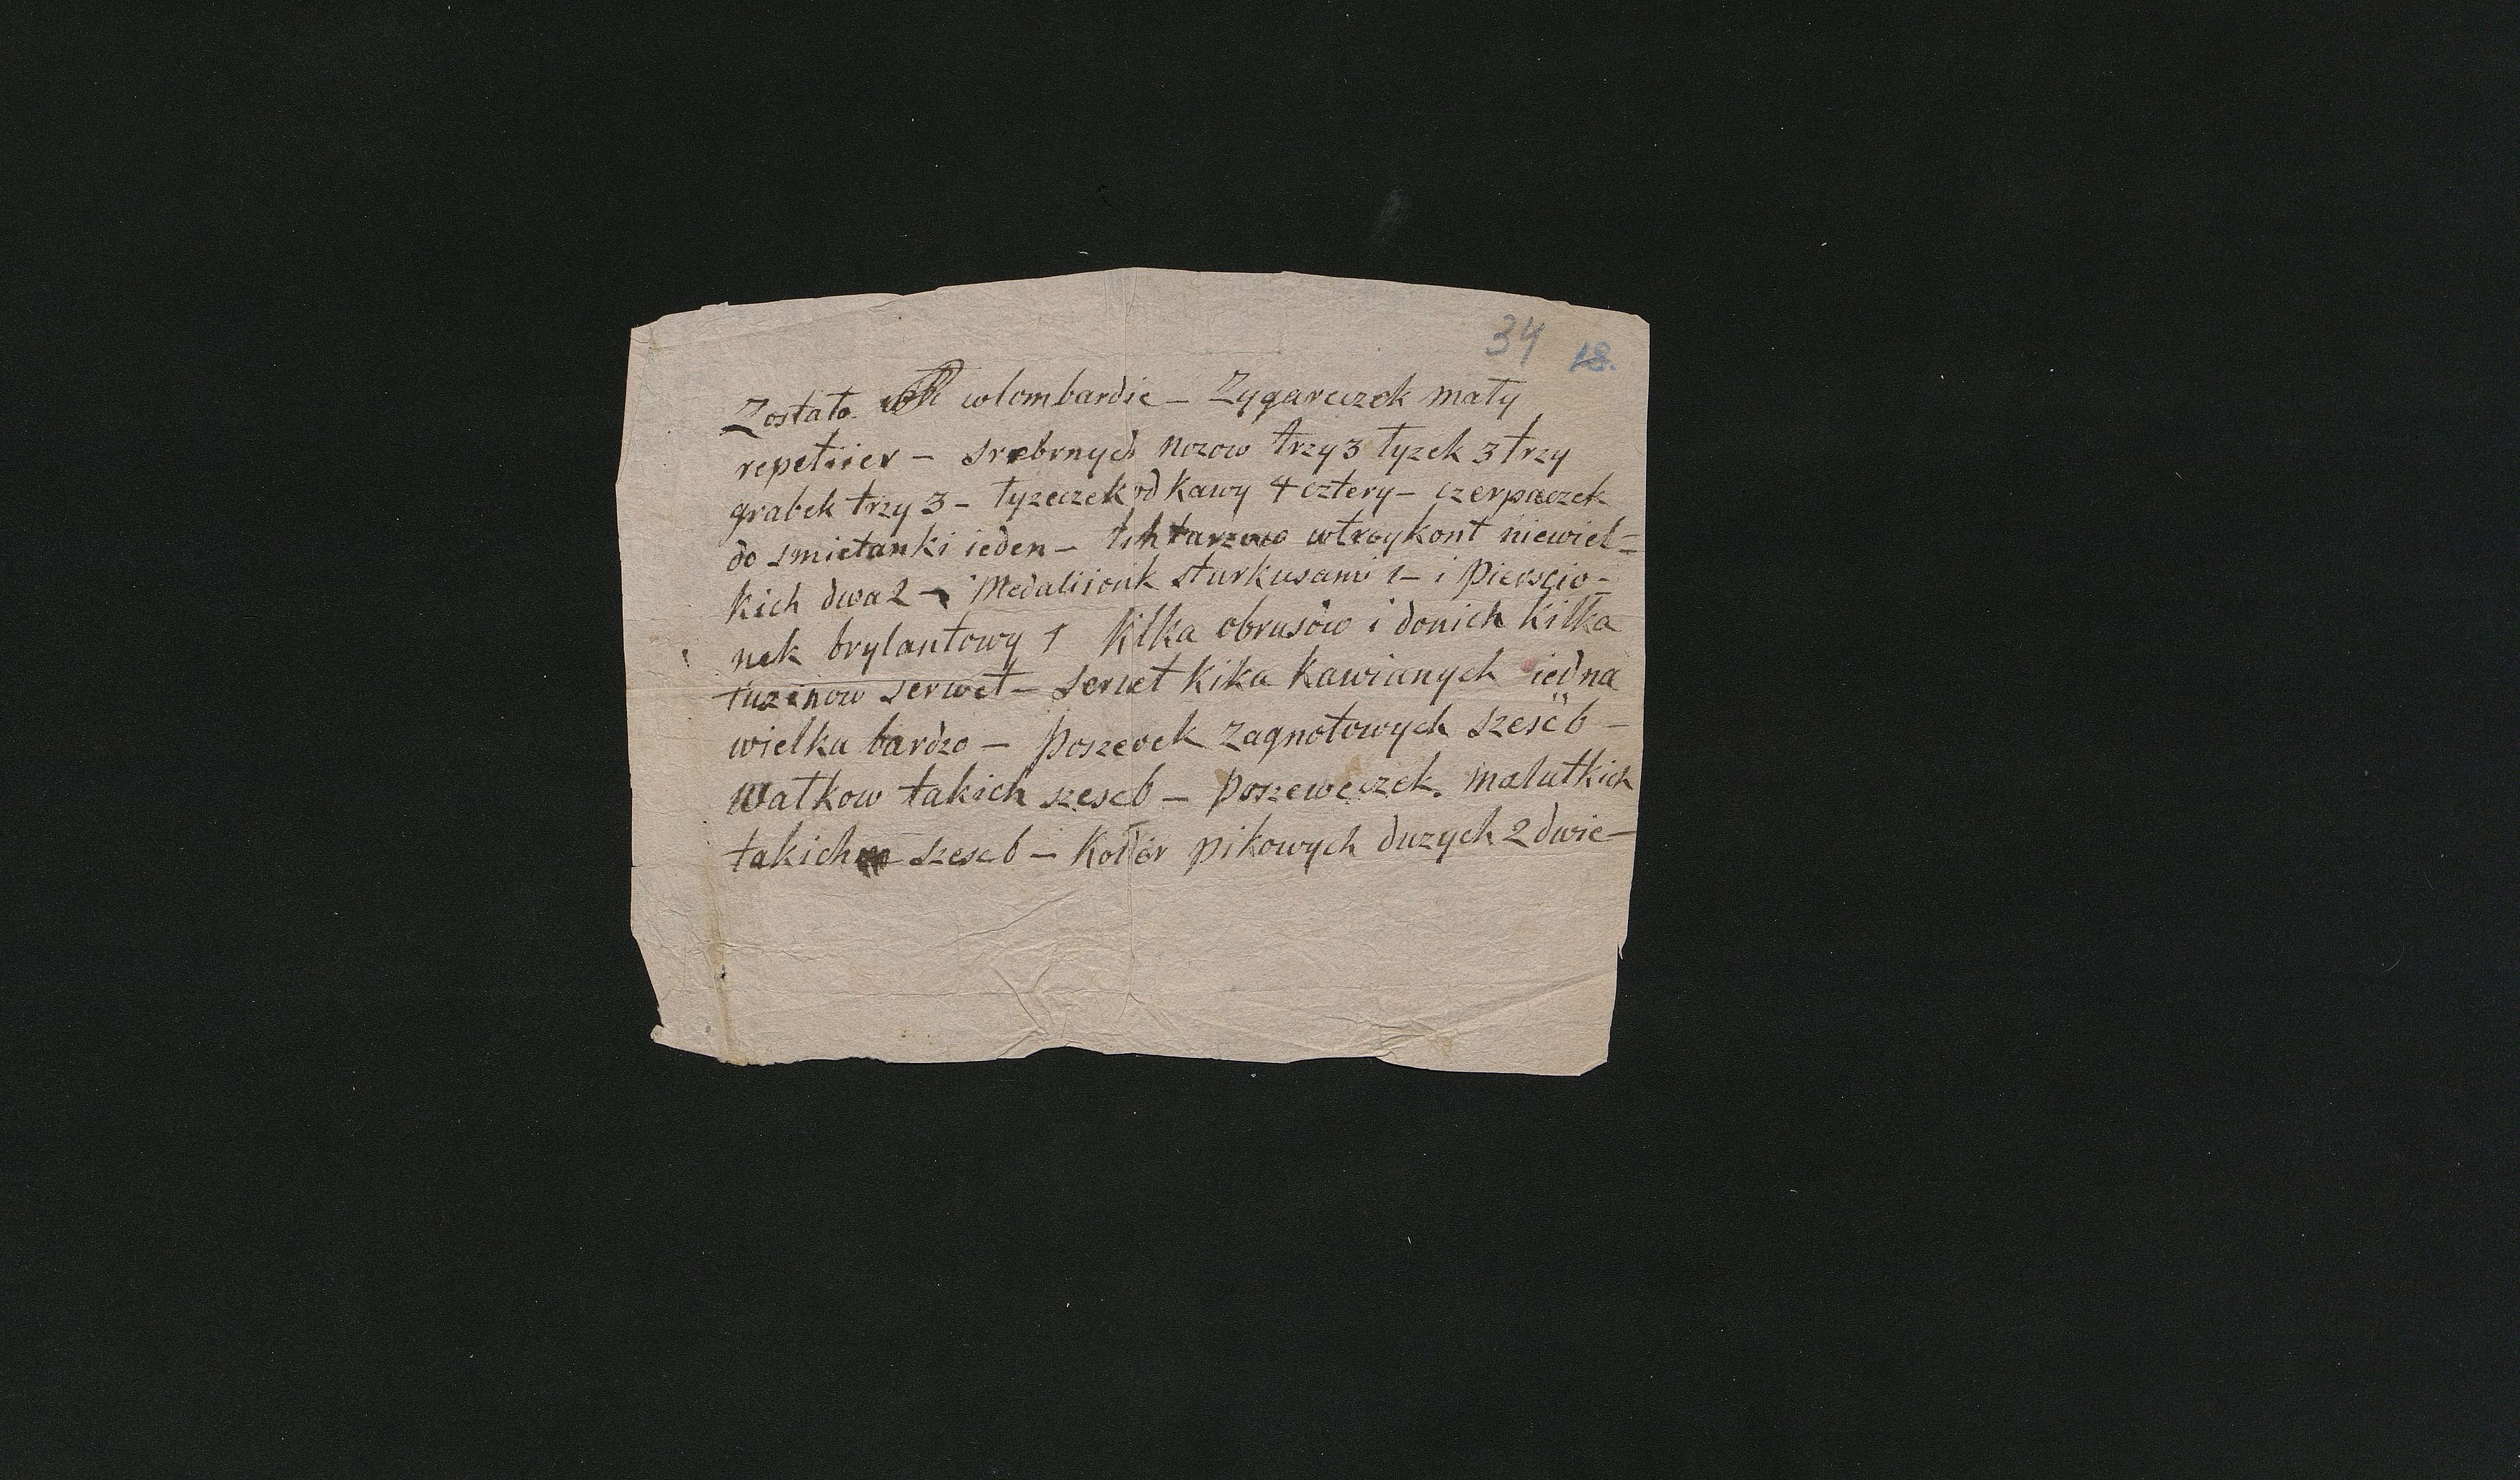 34 18.
Zostało wlombardie – Zygarcczek mały
repetiier – srebrnych nozow trzy 3 łyzek 3 trzy
grabek trzy 3 – łyzeczek od kawy 4 cztery – czerpaczek
do smietanki ieden – wtroykont niewiel=
kich dwa 2 – Medaliionk sturkusami 1 – i Pierscio-
nek brylantowy 1 kilka obrusów i donich kilka
tuzinow serwet – serwet kika kawianych iedna
wielka bardzo – poszevek zagnotowych szesć 6 –
Wałkow takich szesc 6 – poszeweczek malutkich
takich szesc 6 – Kołder pikowych duzych 2 dwie –